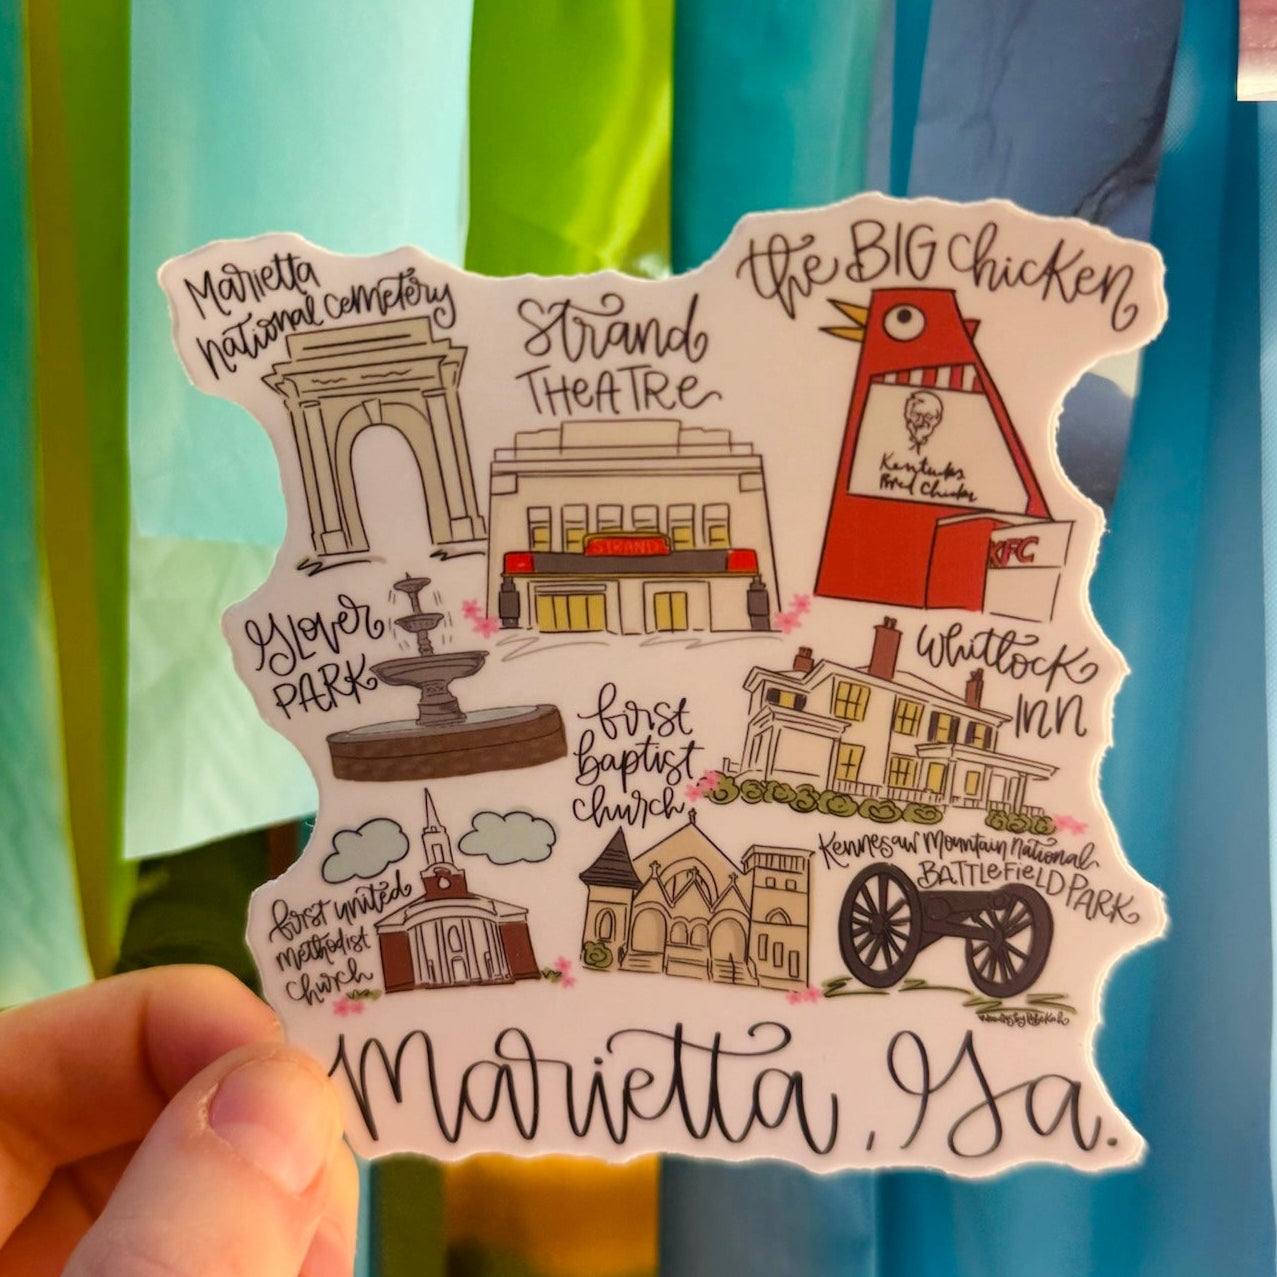 Marietta
National Cemetery
Strand
THEATRE
the BIG Chicken
STRAND
Kentucky
Fried Chicken
KFC
Glover
PARK
Whitlock
INN
first
baptist
church
Kennesaw Mountain National
BATTLEFIELD PARK
first united
methodist
church
Marietta, Ga.